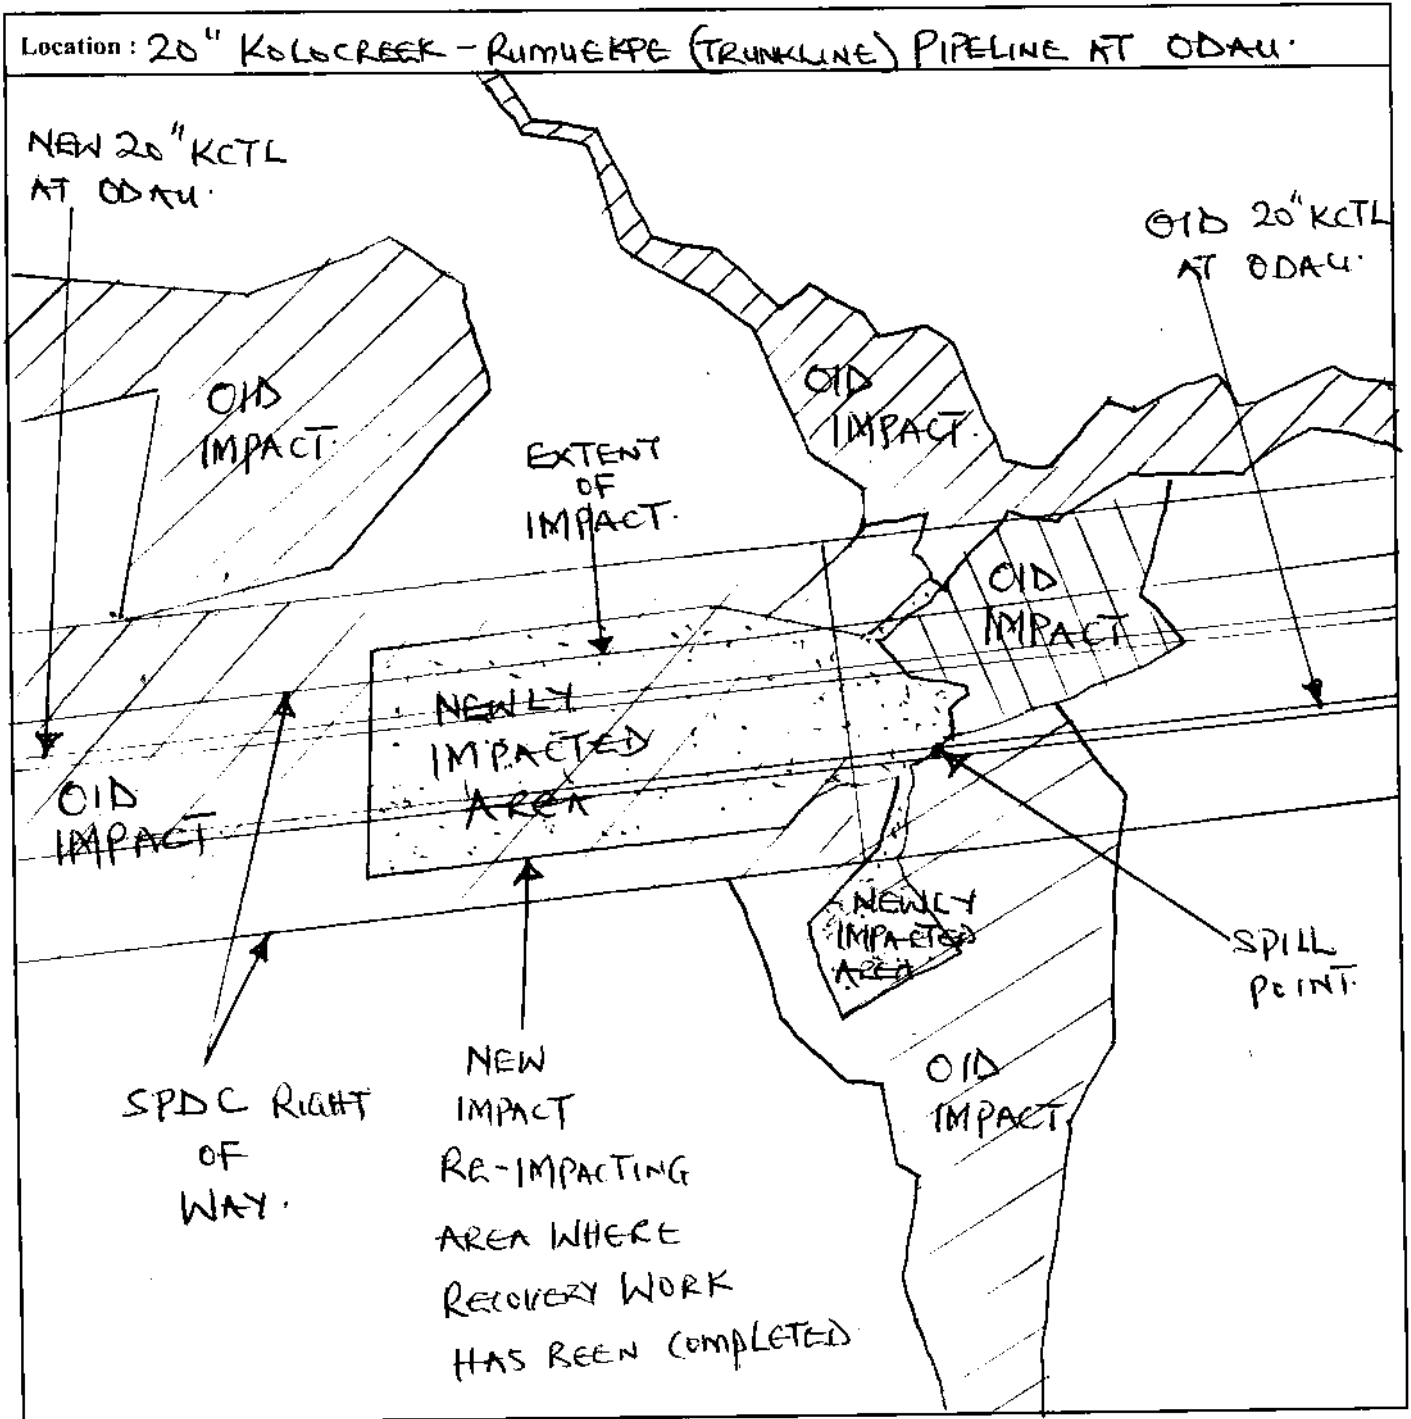 Location : 20" KOLOCREEK - RUMUEKPE (TRUNKLINE) PIPELINE AT ODAU.
NEW 20" KCTL
AT ODAU.
OlD 20" KCTL
AT ODAU.
OlD
IMPACT.
OlD
IMPACT.
EXTENT
OF
IMPACT.
OlD
IMPACT
NEWLY
IMPACTED
AREA
OlD
IMPACT
NEWLY
IMPACTED
AREA
SPILL
POINT.
SPDC RIGHT
OF
WAY.
NEW
IMPACT
RE-IMPACTING
AREA WHERE
RECOVERY WORK
HAS BEEN COMPLETED
OlD
IMPACT